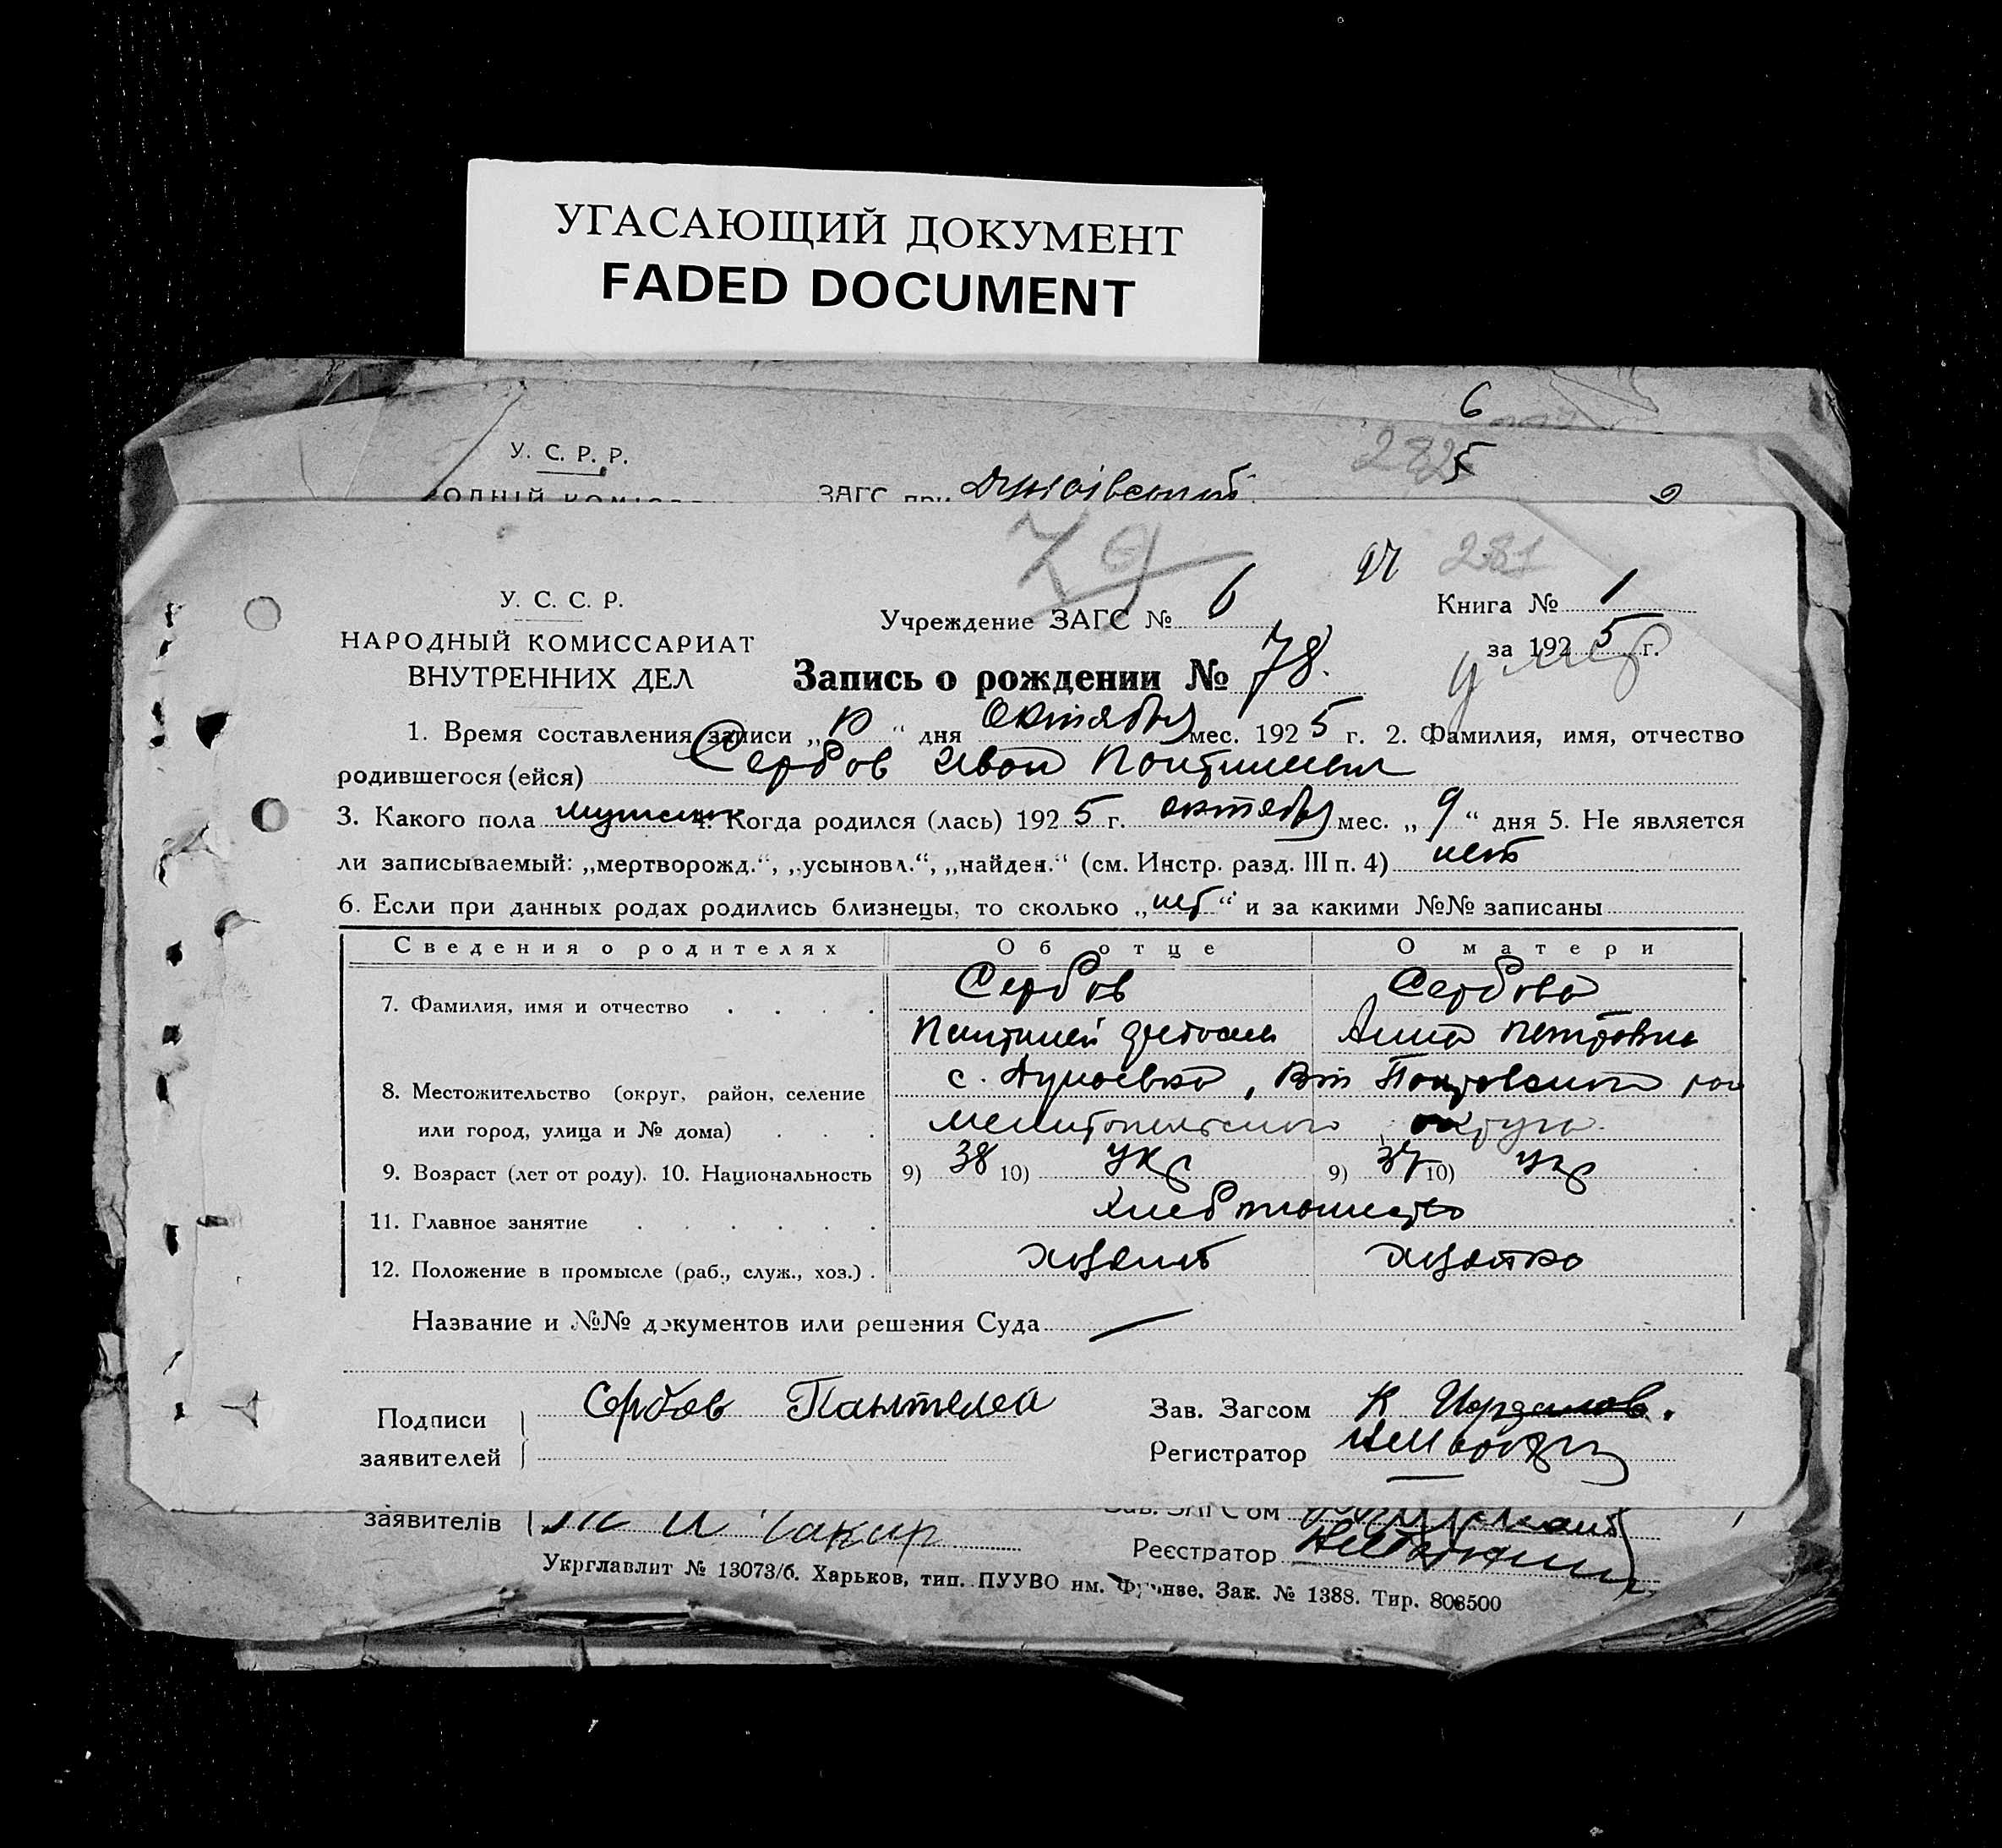 УГАСАЮЩИЙ ДОКУМЕНТ
FADED DOCUMENT
6
У. С. Р. Р.
5
ЗАГС при
79
281
У. С. С. Р.
Учреждение ЗАГС № 6
Книга № 1
НАРОДНЫЙ КОМИССАРИАТ
за 1925 г.
ВНУТРЕННИХ ДЕЛ
Запись о рождении № 78.
1. Время составления записи „10“ дня октября мес. 1925 г. 2. Фамилия, имя, отчество
родившегося (ейся) Сербов Иван
3. Какого пола 4. Когда родился (лась) 1925 г. октября мес. „9“ дня 5. Не является
ли записываемый: „мертворожд.“, „усыновл.“, „найден.“ (см. Инстр. разд. III п. 4) нет
6. Если при данных родах родились близнецы, то сколько „нет“ и за какими №№ записаны
Сведения о родителях Об отце О матери
7. Фамилия, имя и отчество Сербов Сербова
Пантилей Анна Петровна
8. Местожительство (округ, район, селение с. Дунаевка,
или город, улица и № дома) Мелитопольского округа
9. Возраст (лет от роду). 10. Национальность 9) 38 10) укр 9) 37 10) укр
11. Главное занятие хлебопашество
12. Положение в промысле (раб., служ., хоз.) хозяин хозяйка
Название и №№ документов или решения Суда —
Подписи заявителей Сербов Пантелей
Зав. Загсом К
Регистратор
заявителів
Зав. ЗАГСом
Реєстратор
Укрглавлит № 13073/б. Харьков, тип. ПУУВО им. Фрунзе. Зак. № 1388. Тир. 806500